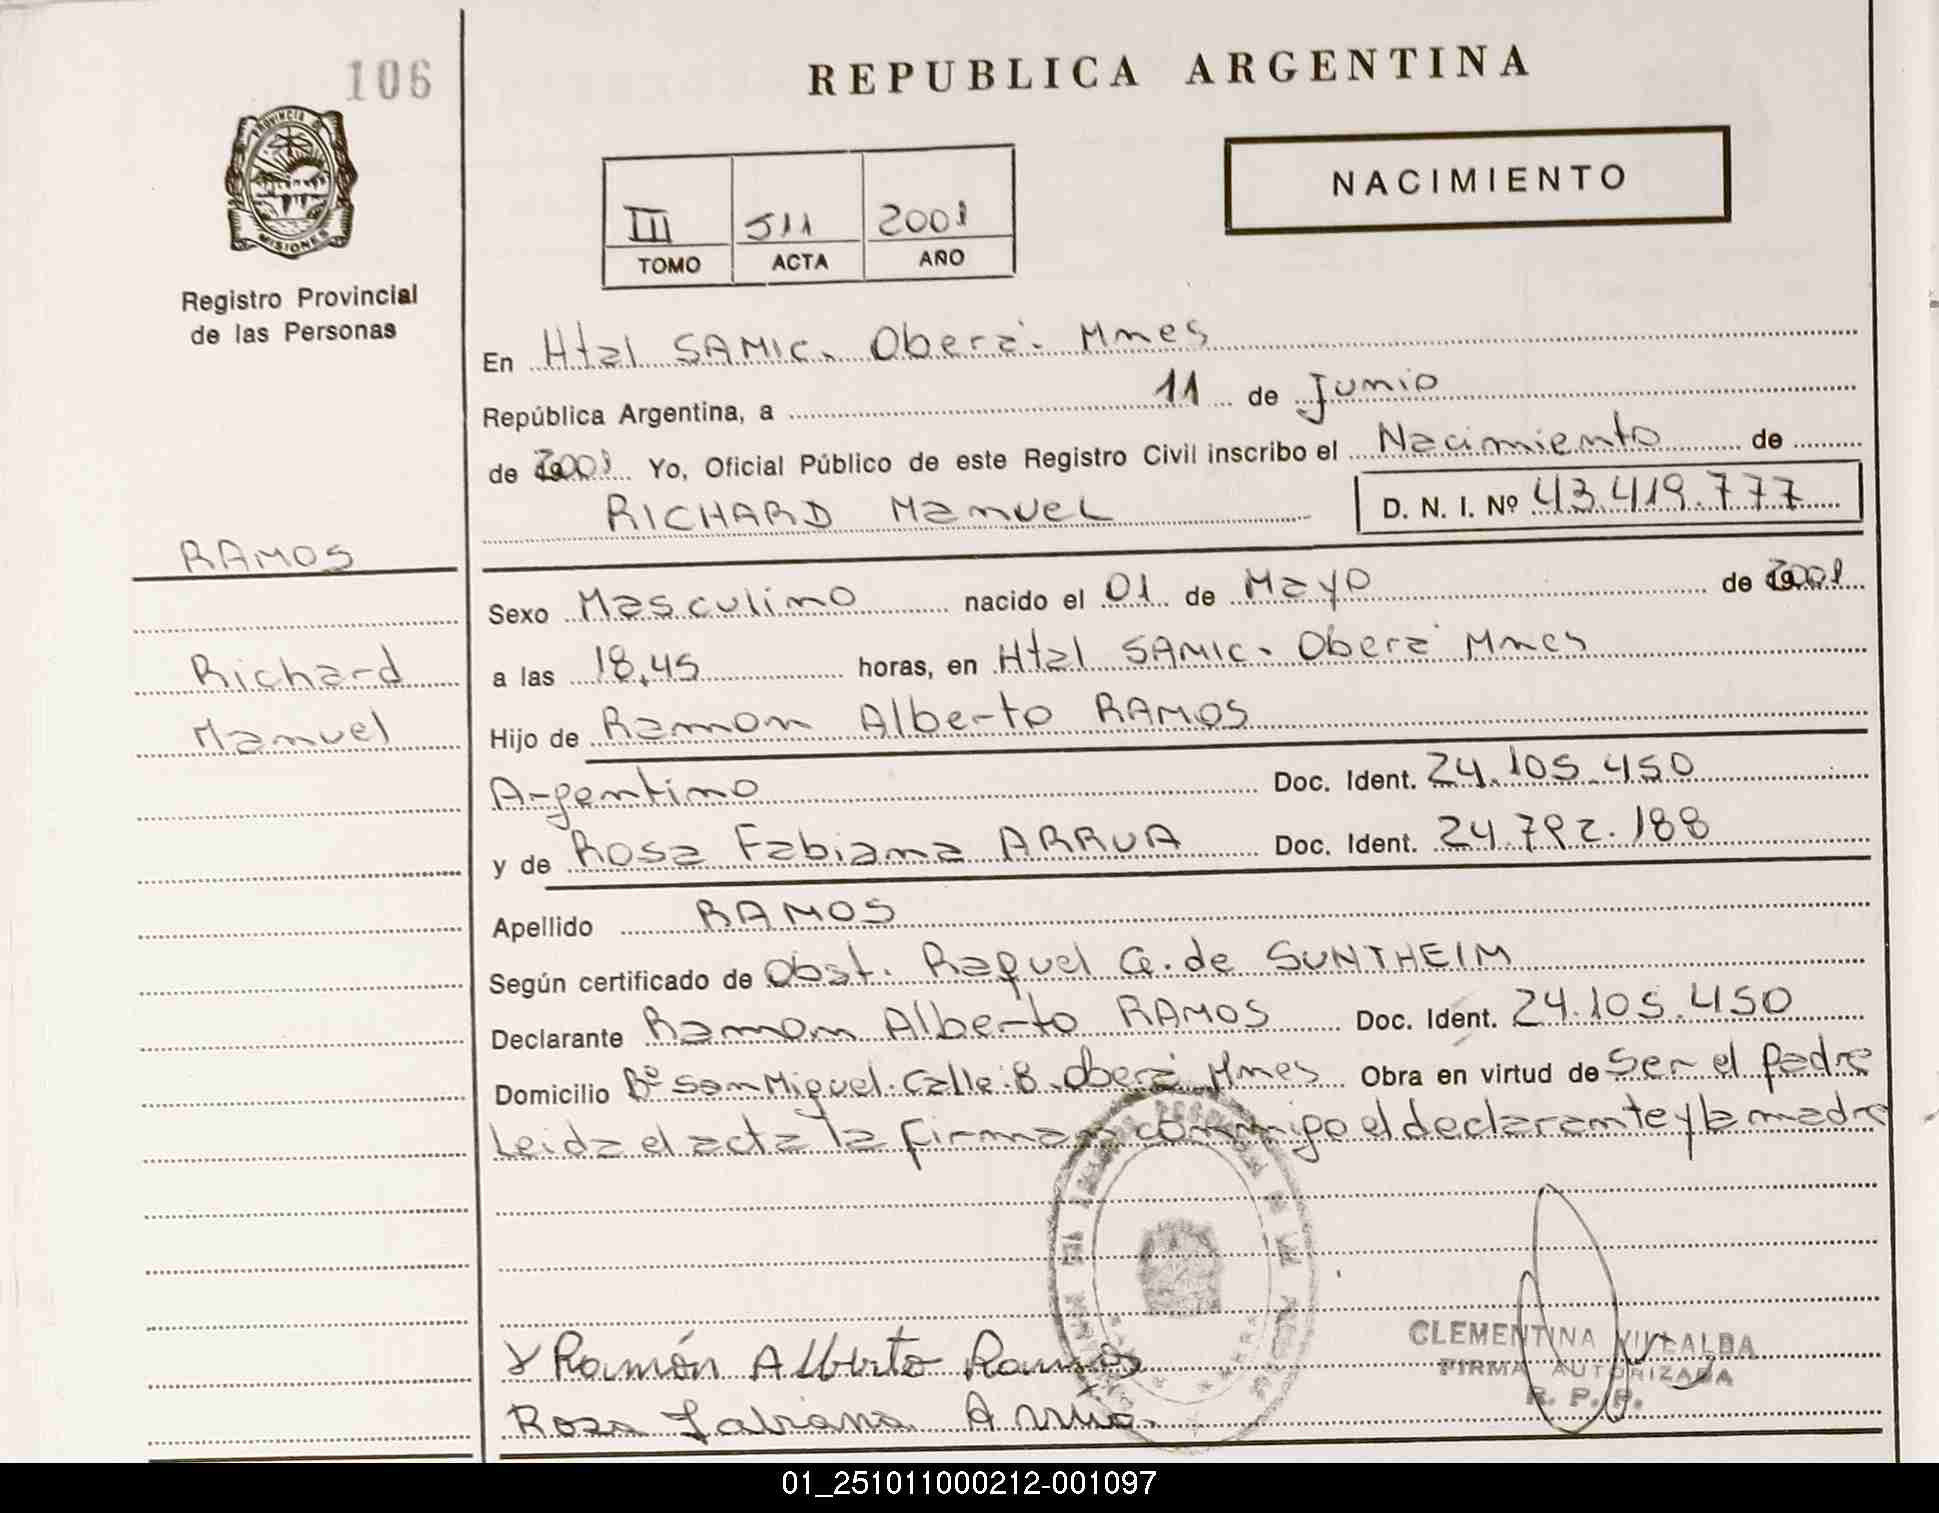 106
REPUBLICA ARGENTINA
PROVINCIA DE
MISIONES
Registro Provincial
de las Personas
NACIMIENTO
III 511 2001
TOMO ACTA AÑO
En Htal SAMIC. Oberá. Mnes
República Argentina, a 11 de Junio
de 2001 Yo, Oficial Público de este Registro Civil inscribo el Nacimiento de
RICHARD Manuel D. N. I. Nº 43.419.777
RAMOS
Richard
Manuel
Sexo Masculino nacido el 01 de Mayo de 2001
a las 18,45 horas, en Htal SAMIC. Oberá Mnes
Hijo de Ramon Alberto RAMOS
Argentino Doc. Ident. 24.105.450
y de Rosa Fabiana ARRUA Doc. Ident. 24.792.188
Apellido RAMOS
Según certificado de Obst. Raquel G. de SUNTHEIM
Declarante Ramon Alberto RAMOS Doc. Ident. 24.105.450
Domicilio Bº San Miguel. Calle B. Oberá Mnes Obra en virtud de ser el padre
Leida el acta la firman conmigo el declarante y la madre
Ramón Alberto Ramos
Rosa Fabiana Arrua.
CLEMENTINA VILLALBA
FIRMA AUTORIZADA
R. P. P.
01_251011000212-001097